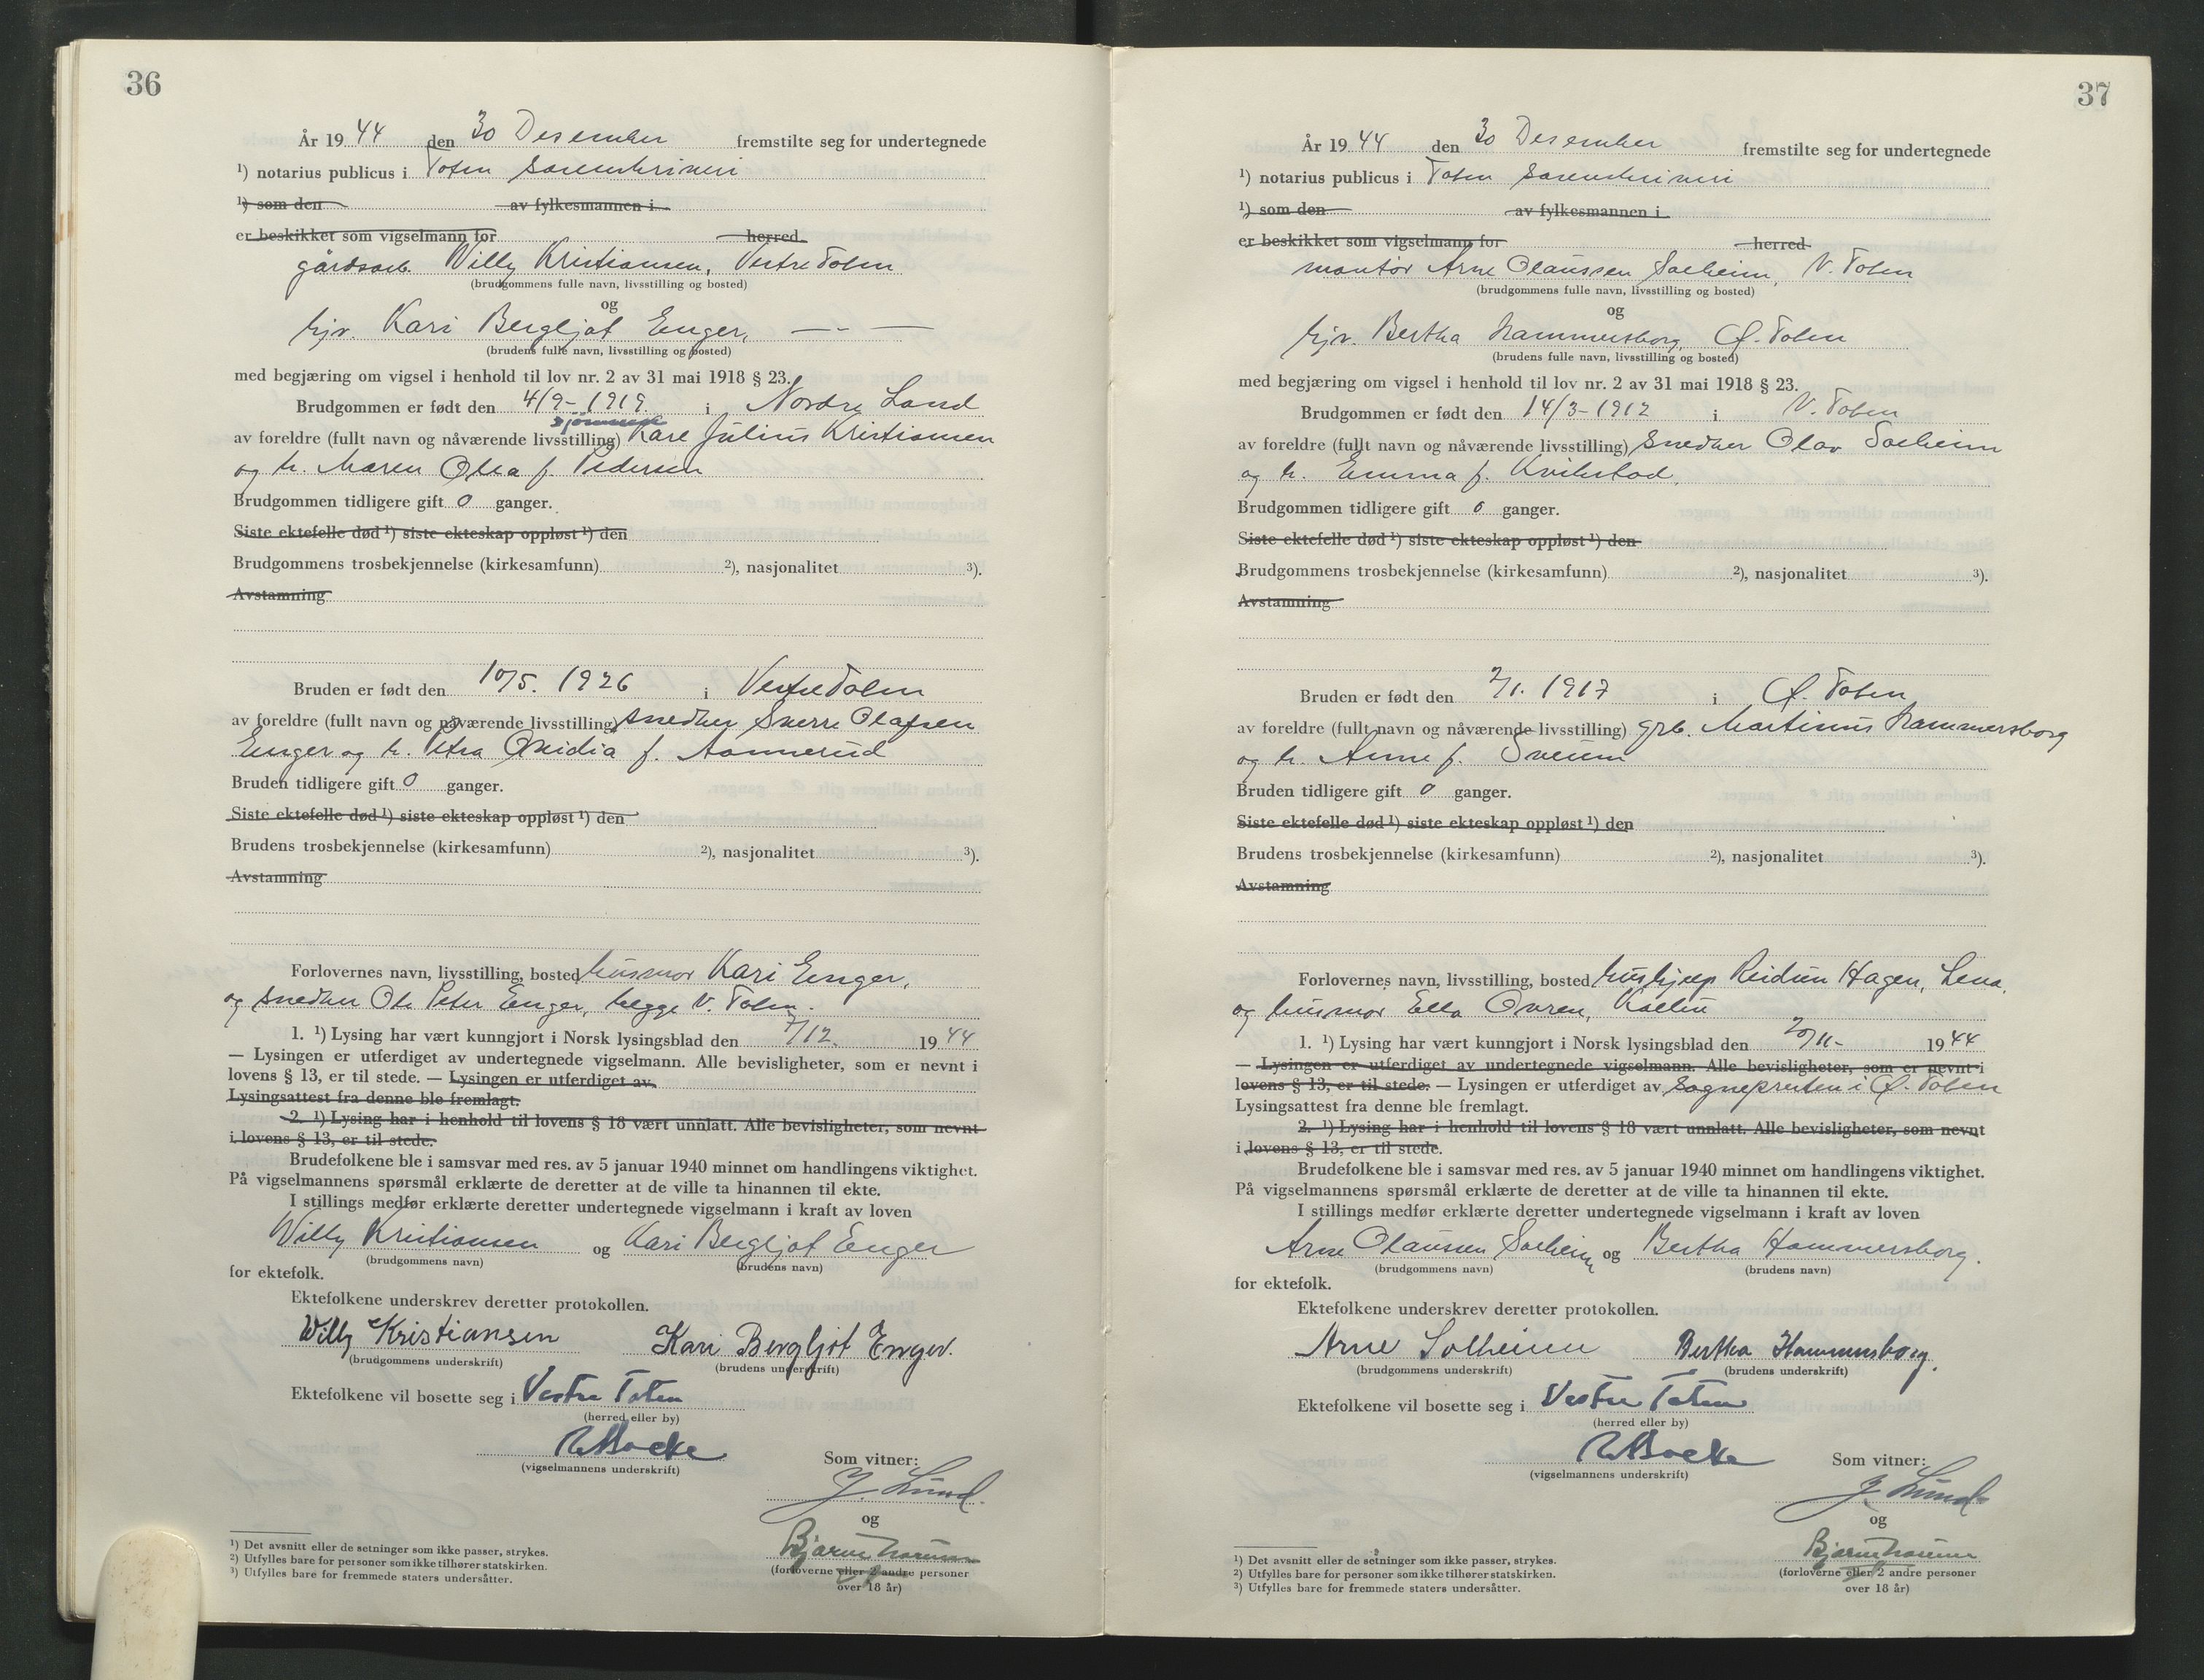 36
År 19 44 den 30 Desember fremstilte seg for undertegnede
¹) notarius publicus i Toten Sorenskriveri
¹) som den av fylkesmannen i
er beskikket som vigselmann for herred
gårdsarb. Willy Kristiansen, Vestre Toten
(brudgommens fulle navn, livsstilling og bosted)
og
hjv. Kari Bergljot Enger, — - —
(brudens fulle navn, livsstilling og bosted)
med begjæring om vigsel i henhold til lov nr. 2 av 31 mai 1918 § 23.
Brudgommen er født den 4/9-1919. i Nordre Land
av foreldre (fullt navn og nåværende livsstilling) Kare Julius Kristiansen
og h. Maren Olea f. Pedersen
Brudgommen tidligere gift 0 ganger.
Siste ektefelle død ¹) siste ekteskap oppløst ¹) den
Brudgommens trosbekjennelse (kirkesamfunn) ²), nasjonalitet ³).
Avstamning
Bruden er født den 10/5. 1926 i Vestre Toten
av foreldre (fullt navn og nåværende livsstilling) snedker Sverre Olafsen
Enger og h. Petra Ovidia f. Aannerud
Bruden tidligere gift 0 ganger.
Siste ektefelle død ¹) siste ekteskap oppløst ¹) den
Brudens trosbekjennelse (kirkesamfunn) ²), nasjonalitet ³).
Avstamning
Forlovernes navn, livsstilling, bosted husmor Kari Enger,
og snedker Ole Peter Enger, begge V. Toten.
1. ¹) Lysing har vært kunngjort i Norsk lysingsblad den 7/12. 19 44
— Lysingen er utferdiget av undertegnede vigselmann. Alle bevisligheter, som er nevnt i
lovens § 13, er til stede. — Lysingen er utferdiget av
Lysingsattest fra denne ble fremlagt.
2. ¹) Lysing har i henhold til lovens § 18 vært unnlatt. Alle bevisligheter, som nevnt
i lovens § 13, er til stede.
Brudefolkene ble i samsvar med res. av 5 januar 1940 minnet om handlingens viktighet.
På vigselmannens spørsmål erklærte de deretter at de ville ta hinannen til ekte.
I stillings medfør erklærte deretter undertegnede vigselmann i kraft av loven
Willy Kristiansen og Kari Bergljot Enger
(brudgommens navn) (brudens navn)
for ektefolk.
Ektefolkene underskrev deretter protokollen.
Willy Kristiansen Kari Bergljot Enger.
(brudgommens underskrift) (brudens underskrift)
Ektefolkene vil bosette seg i Vestre Toten
(herred eller by)
(vigselmannens underskrift) Som vitner:
J. Lund.
og
Bjarne
(forloverne eller 2 andre personer
over 18 år)
¹) Det avsnitt eller de setninger som ikke passer, strykes.
²) Utfylles bare for personer som ikke tilhører statskirken.
³) Utfylles bare for fremmede staters undersåtter.
37
År 19 44 den 30 Desember fremstilte seg for undertegnede
¹) notarius publicus i Toten Sorenskriveri
¹) som den av fylkesmannen i
er beskikket som vigselmann for herred
montør Arne Olaussen Solheim, V. Toten
(brudgommens fulle navn, livsstilling og bosted)
og
hjv. Bertha Hammersborg, Ø. Toten
(brudens fulle navn, livsstilling og bosted)
med begjæring om vigsel i henhold til lov nr. 2 av 31 mai 1918 § 23.
Brudgommen er født den 14/3-1912 i V. Toten
av foreldre (fullt navn og nåværende livsstilling) snedker Olav Solheim
og h. Emma f. Kvikstad.
Brudgommen tidligere gift 0 ganger.
Siste ektefelle død ¹) siste ekteskap oppløst ¹) den
Brudgommens trosbekjennelse (kirkesamfunn) ²), nasjonalitet ³).
Avstamning
Bruden er født den 2/1. 1917 i Ø. Toten
av foreldre (fullt navn og nåværende livsstilling) grb. Martinus Hammersborg
og h. Anne f. Sveum
Bruden tidligere gift 0 ganger.
Siste ektefelle død ¹) siste ekteskap oppløst ¹) den
Brudens trosbekjennelse (kirkesamfunn) ²), nasjonalitet ³).
Avstamning
Forlovernes navn, livsstilling, bosted hushjelp Reidun Hagen, Lena,
og husmor Ella Ovren, Kolbu
1. ¹) Lysing har vært kunngjort i Norsk lysingsblad den 20/11- 19 44
— Lysingen er utferdiget av undertegnede vigselmann. Alle bevisligheter, som er nevnt i
lovens § 13, er til stede. — Lysingen er utferdiget av sognepresten i Ø. Toten
Lysingsattest fra denne ble fremlagt.
2. ¹) Lysing har i henhold til lovens § 18 vært unnlatt. Alle bevisligheter, som nevnt
i lovens § 13, er til stede.
Brudefolkene ble i samsvar med res. av 5 januar 1940 minnet om handlingens viktighet.
På vigselmannens spørsmål erklærte de deretter at de ville ta hinannen til ekte.
I stillings medfør erklærte deretter undertegnede vigselmann i kraft av loven
Arne Olaussen Solheim og Bertha Hammersborg.
(brudgommens navn) (brudens navn)
for ektefolk.
Ektefolkene underskrev deretter protokollen.
Arne Solheim Bertha Hammersborg.
(brudgommens underskrift) (brudens underskrift)
Ektefolkene vil bosette seg i Vestre Toten
(herred eller by)
(vigselmannens underskrift) Som vitner:
J. Lund
og
Bjarne
(forloverne eller 2 andre personer
over 18 år)
¹) Det avsnitt eller de setninger som ikke passer, strykes.
²) Utfylles bare for personer som ikke tilhører statskirken.
³) Utfylles bare for fremmede staters undersåtter.